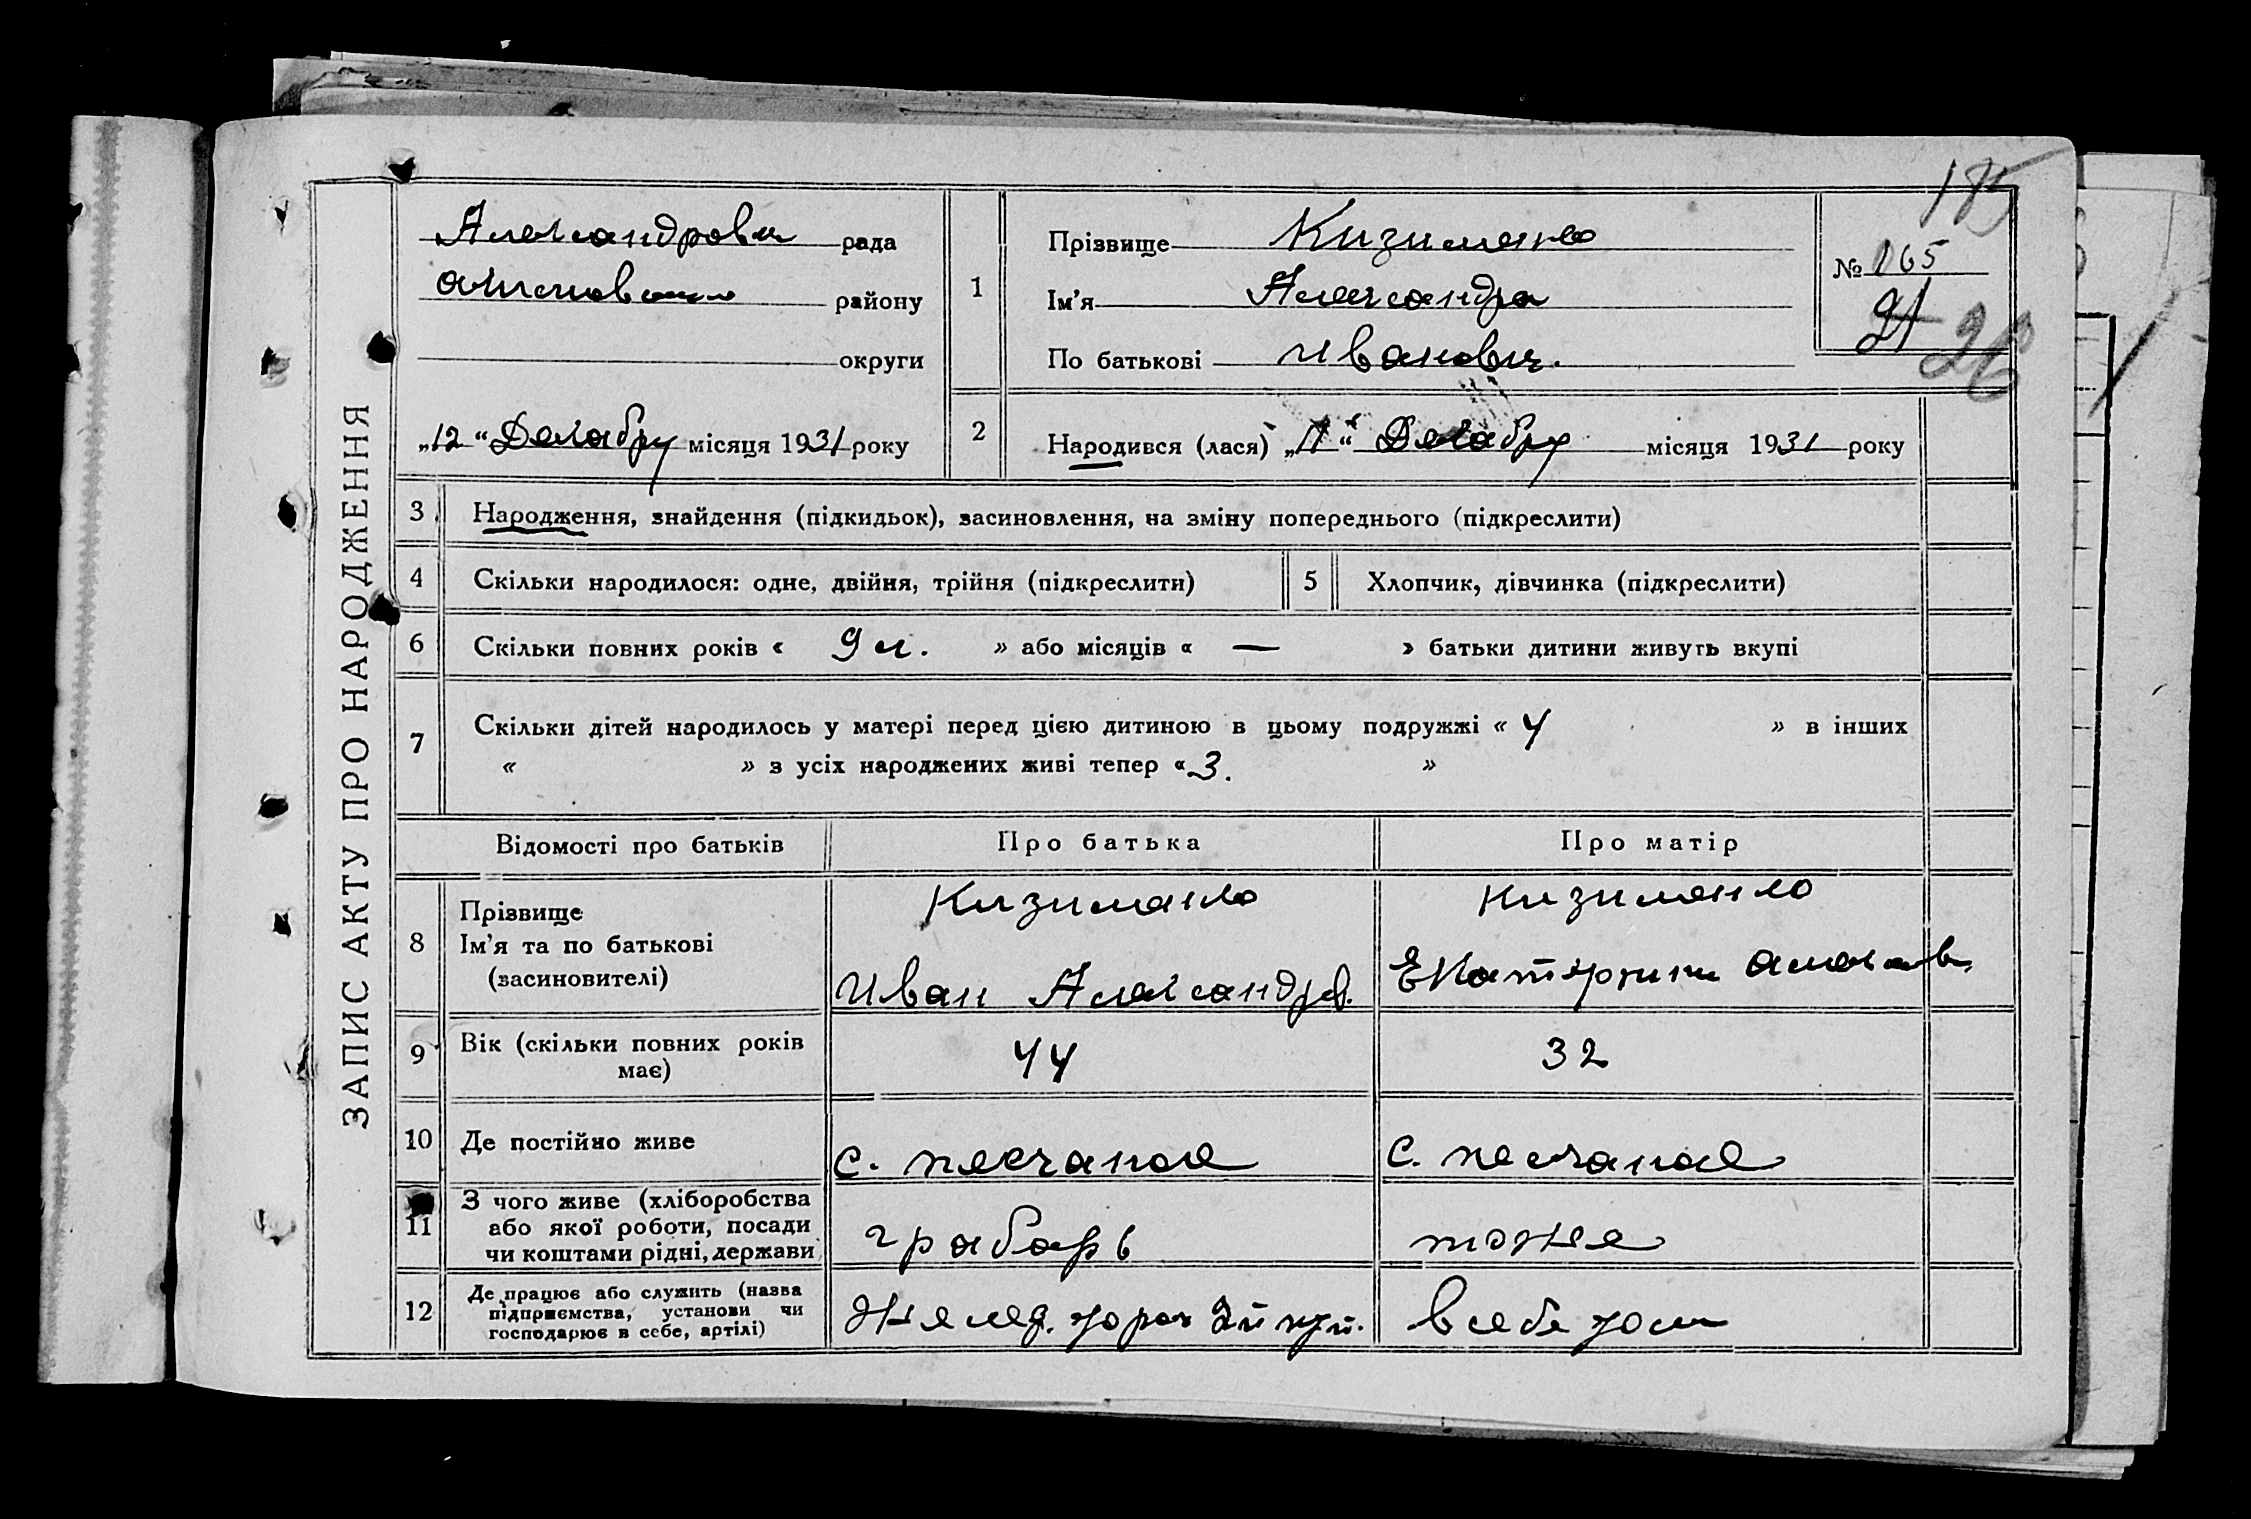 ЗАПИС АКТУ ПРО НАРОДЖЕННЯ
185
Александровк рада
району
округи
„12“ Декабру місяця 1931 року
1
Прізвище Кизименко
Ім’я Александра
По батькові Иванович.
№ 165
21
26
2
Народився (лася) „11“ Декабру місяця 1931 року
3 Народження, знайдення (підкидьок), засиновлення, на зміну попереднього (підкреслити)
4 Скільки народилося: одне, двійня, трійня (підкреслити) 5 Хлопчик, дівчинка (підкреслити)
6 Скільки повних років « 9 л. » або місяців « — » батьки дитини живуть вкупі
7 Скільки дітей народилось у матері перед цією дитиною в цьому подружжі « 4 » в інших
« » з усіх народжених живі тепер « 3. »
Відомості про батьків Про батька Про матір
8 Прізвище
Ім’я та по батькові
(засиновителі)
Кизименко
Иван Александров.
Кизименко
Екатерина
9 Вік (скільки повних років
має)
44 32
10 Де постійно живе с. песчаное с. песчаное
11 З чого живе (хліборобства
або якої роботи, посади
чи коштами рідні, держави
грабарь тоже
12 Де працює або служить (назва
підприємства, установи чи
господарює в себе, артілі)